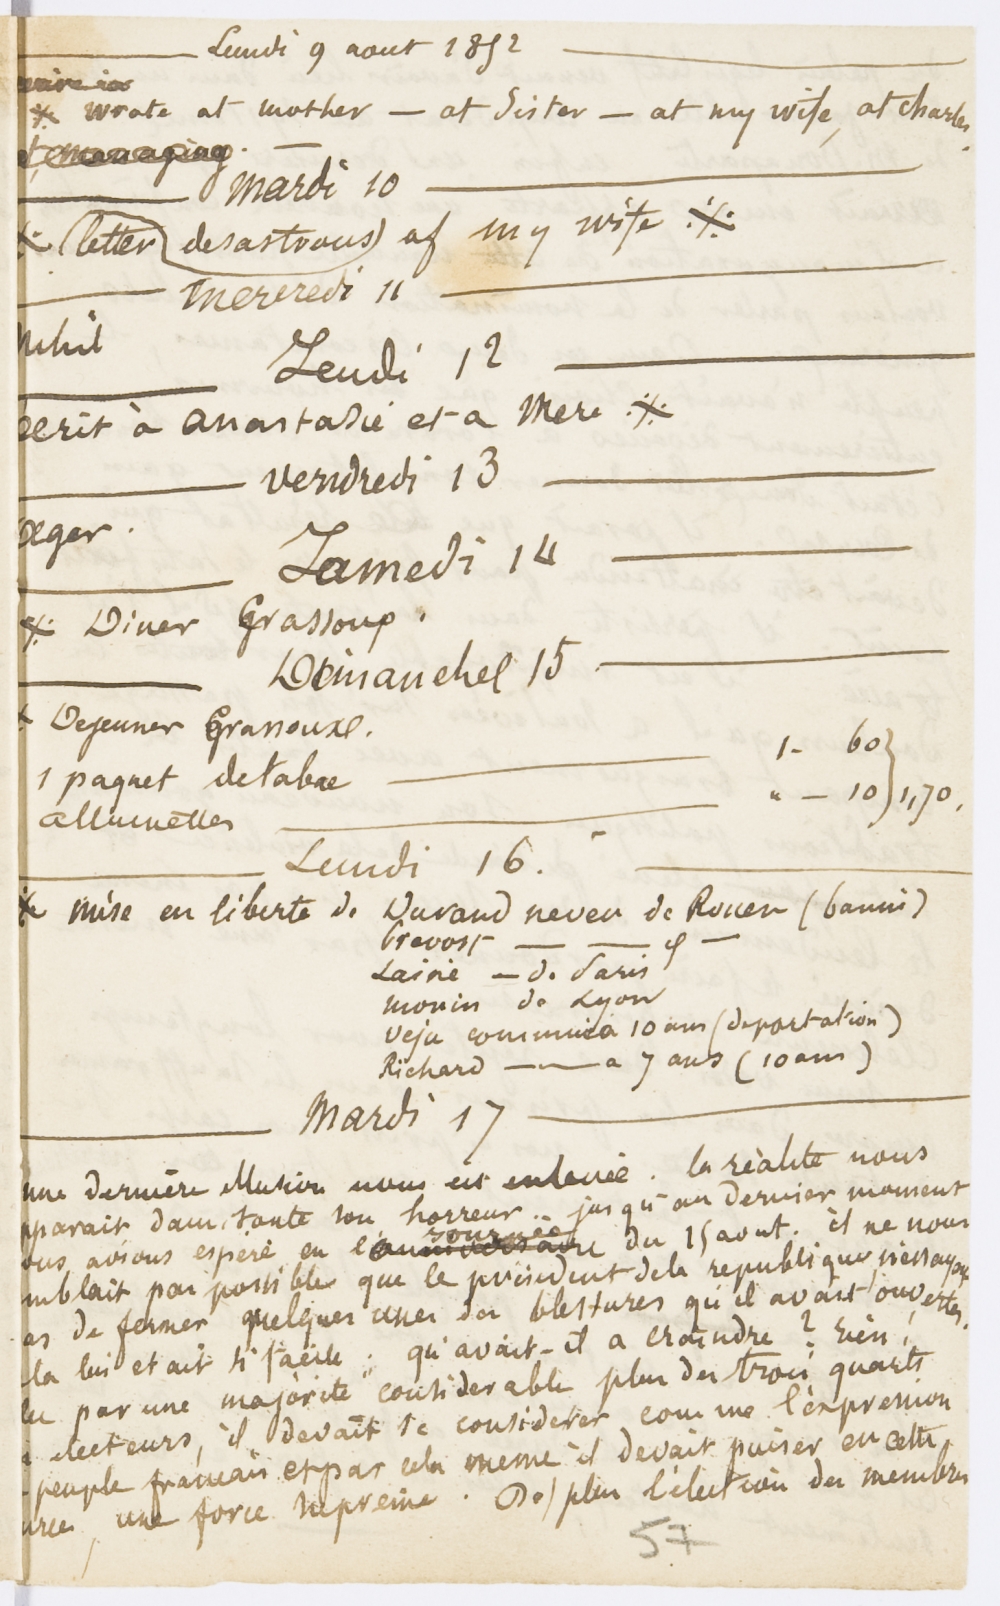 Lundi 9 aout 1852
※ wrote at mother — at Sister — at my wife, at charles.
et managing. —
Mardi 10
※ (letter desastrous) of my wife ※
Mercredi 11
Nihil
Jeudi 12
ecrit à anastasie et a Mere ※
Vendredi 13
œger.
Samedi 14
※ Diner Grassoup.
Dimanchel 15
※ Dejeuner Grassouxl.
1 paquet detabac — 1 - 60
allumettes — " - 10 } 1,70.
Lundi 16.
※ Mise en liberte de Durand neveu de Rouen (banni)
Prevost — — d° —
Lainé — de Paris
monin de Lyon
Veja commuée a 10 ans (deportation)
Richard —— a 7 ans (10 ans)
Mardi 17
une derniére illusion nous est enlevée. la réalité nous
pparait dans toute son horreur.. jusqu'au dernier moment
ous avions espéré en la journée du 15 aout. il ne nous
mblait pas possible que le président dela republique n'essayat
as de fermer quelques unes des blessures qu'il avait ouvertes.
la lui etait si facile. qu'avait-il a craindre? rien!
lu par une majorité considerable plus des trois quarts
electeurs, il devait se considerer comme l'expression
peuple francais et par cela meme il devait puiser en cette
urce, une force supreme. De plus l'élection des membres
57